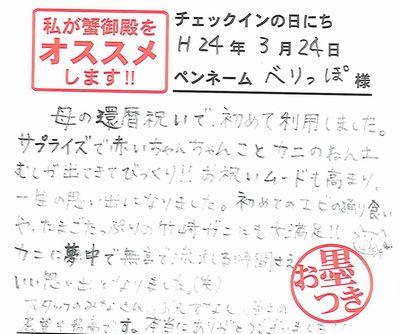 私が蟹御殿を
オススメ
します!!
チェックインの日にち
H24年3月24日
ペンネーム べりっぽ 様
母の還暦祝いで、初めて利用しました。
サプライズで赤いちゃんちゃんことカニのねん土
むしが出てきてびっくり!!お祝いムードも高まり、
一生の思い出になりました。初めてのエビの踊り食い
や、たまごたっぷりの竹崎ガニにも大満足!!
カニに夢中で無言で流れる時間さえ
いい思い出となりました。(笑)
スタッフのみなさん、おもてなし、
も最高です。本当にありがとうございました
お墨つき